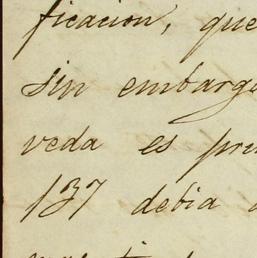 ficacion, que
sin embarg
veda es pri
137 debia